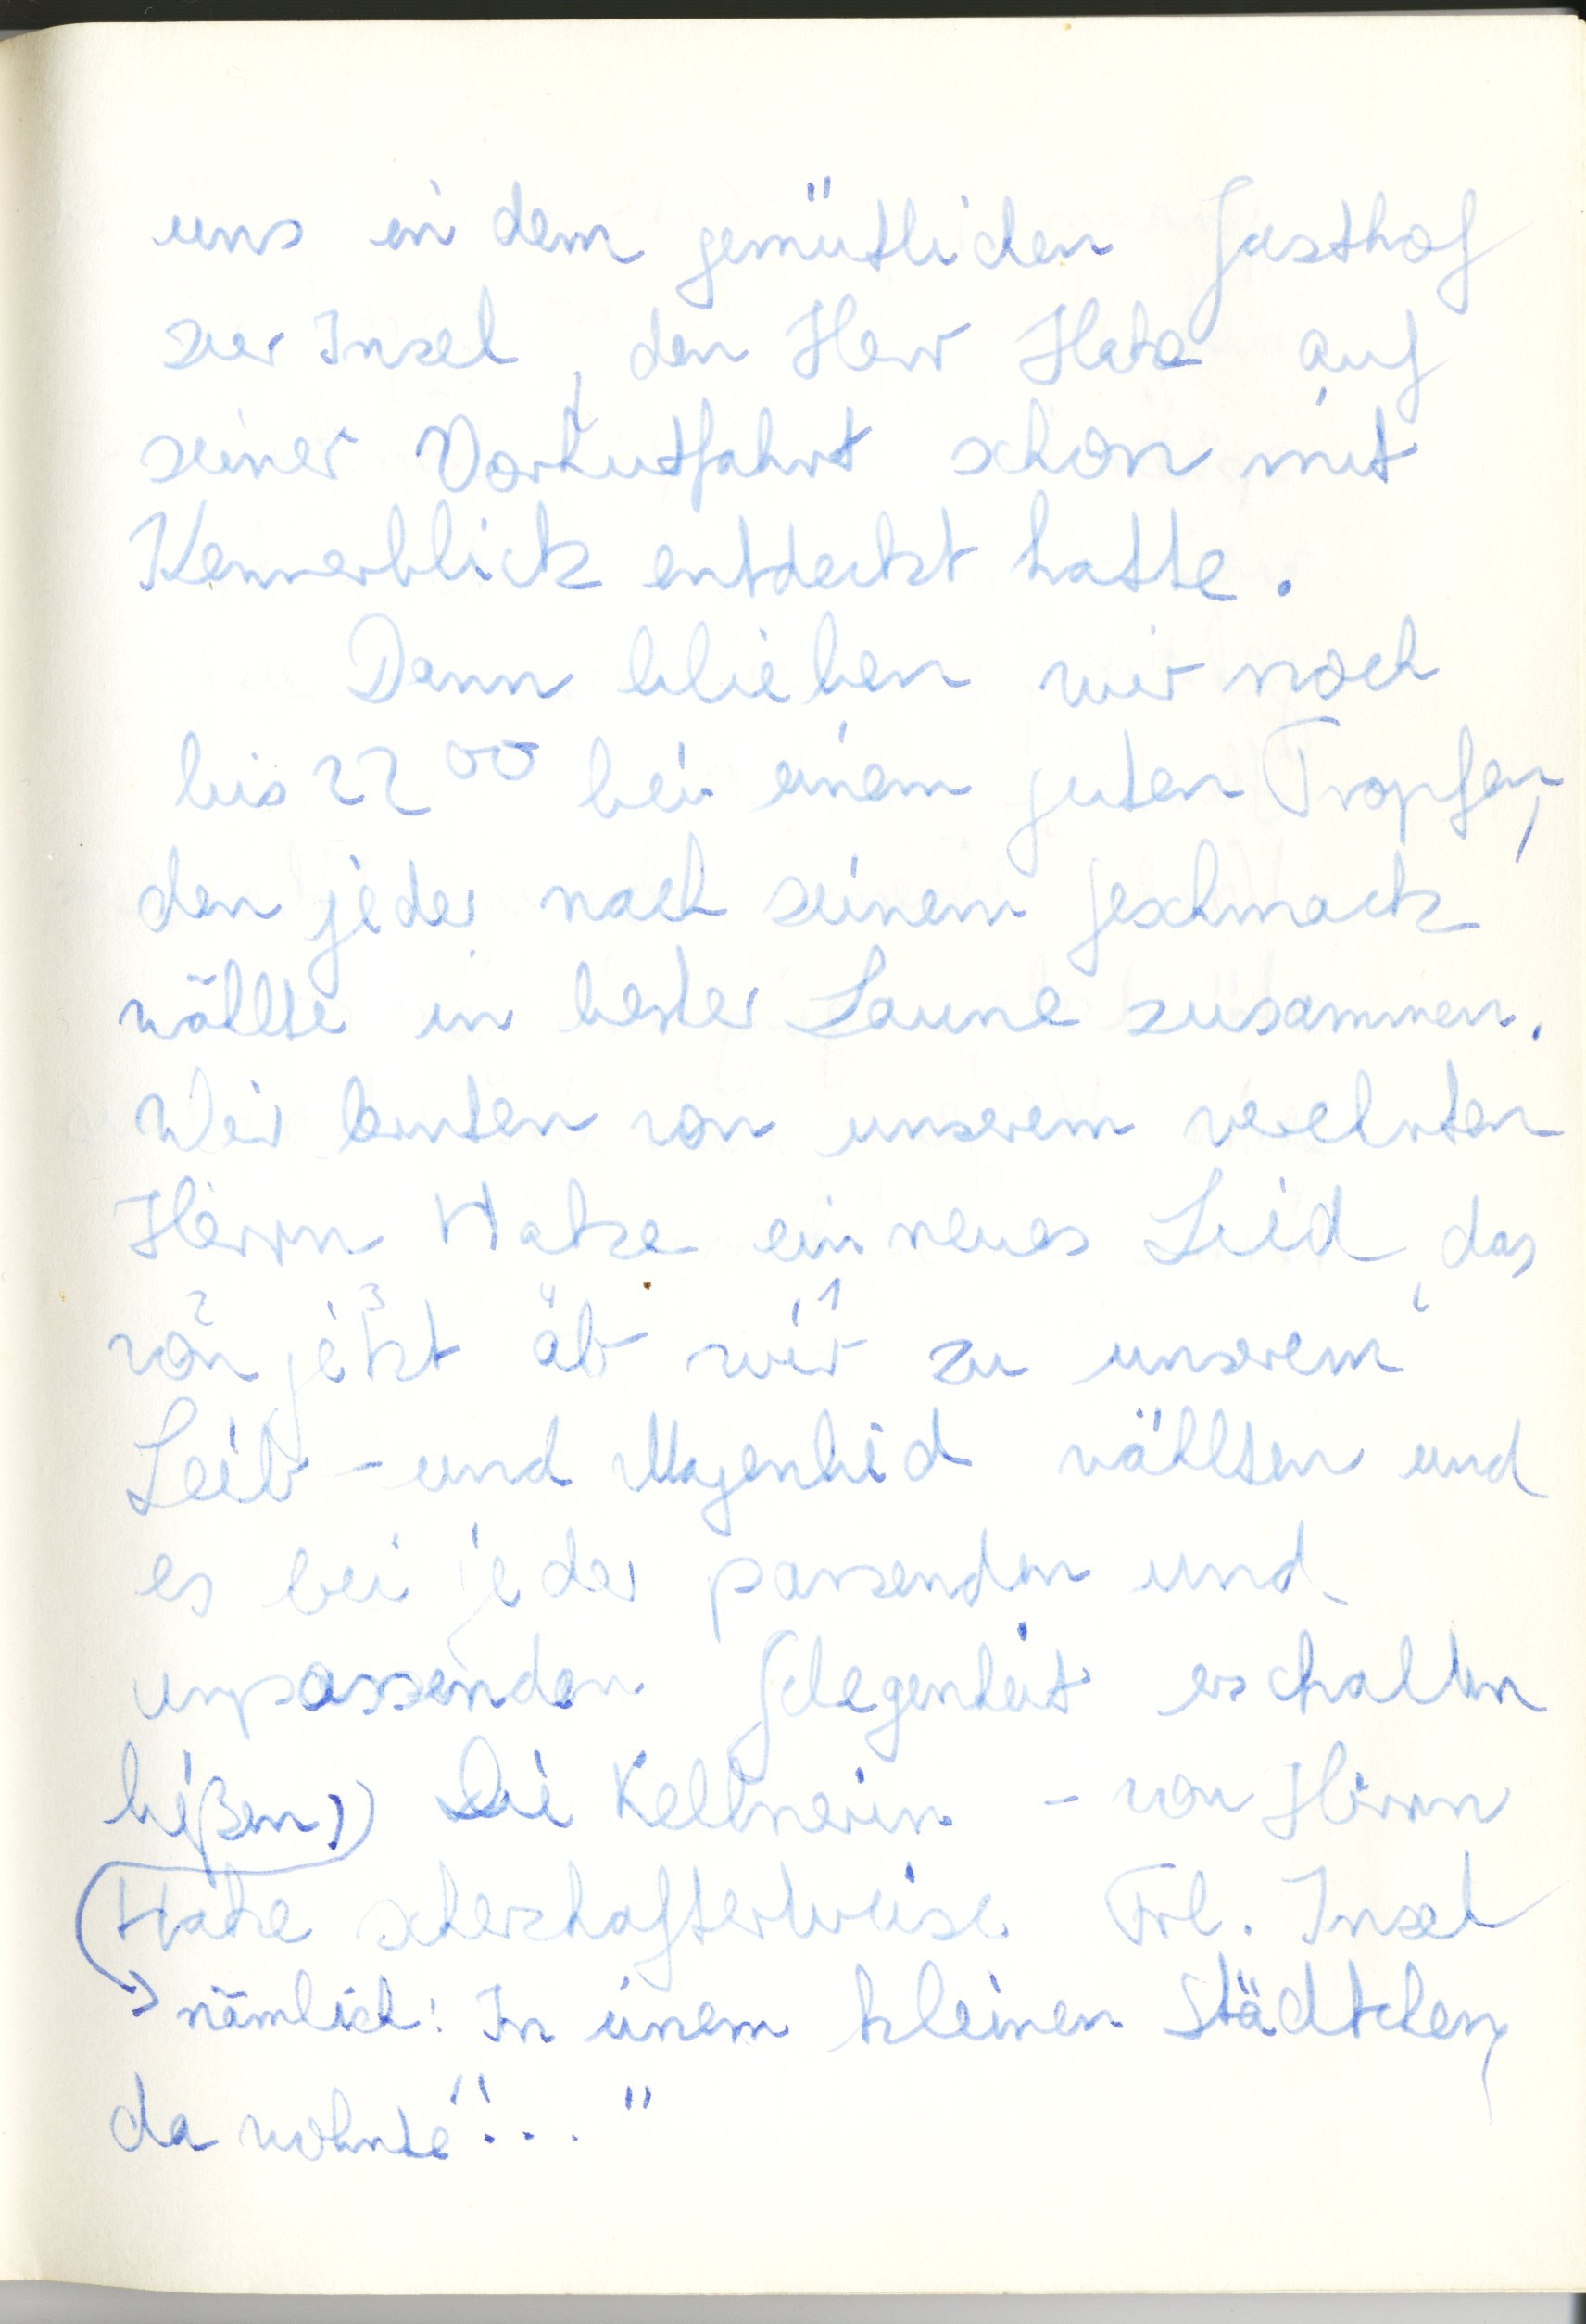 uns in dem gemütlichen Gasthof
zur Insel, den Herr Hatze auf
seiner Vorhutfahrt schon mit
Kennerblick entdeckt hatte.
Dann blieben wir noch
bis 22 00 bei einem guten Tropfen,
den jeder nach seinem Geschmack
wählte in bester Laune zusammen.
Wir lernten von unserem verehrten
Herrn Hatze ein neues Lied, das
2 3 4 1
von jetzt ab wir zu unserem
Leib- und Magenlied wählten und
es bei jeder passenden und
unpassenden Gelegenheit erschallen
ließen)) Die Kellnerin - von Herrn
Hatze scherzhafterweise Frl. Insel
→ nämlich: In einem kleinen Städtchen,
da wohnte"... "